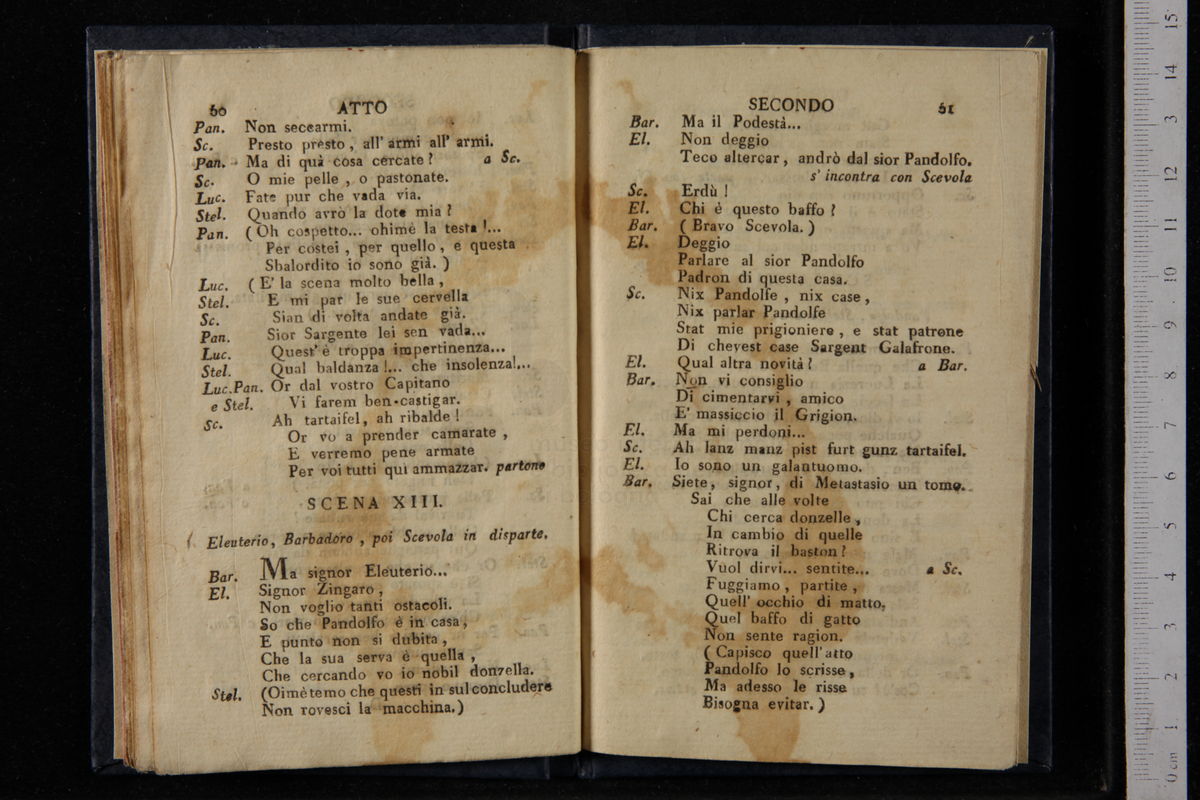 60 ATTO
Pan. Non seccarmi.
Sc. Presto presto, all' armi all' armi.
Pan. Ma di quà cosa cercate? a Sc.
Sc. O mie pelle, o pastonate.
Luc. Fate pur che vada via.
Stel. Quando avrò la dote mia?
Pan. (Oh cospetto... ohimè la testa!...
Per costei, per quello, e questa
Sbalordito io sono già.)
Luc. (E' la scena molto bella,
Stel. E mi par le sue cervella
Sc. Sian di volta andate già.
Pan. Sior Sargente lei sen vada...
Luc. Quest' è troppa impertinenza...
Stel. Qual baldanza!... che insolenza!...
Luc.Pan. Or dal vostro Capitano
e Stel. Vi farem ben-castigar.
Sc. Ah tartaifel, ah ribalde!
Or vo a prender camarate,
E verremo pene armate
Per voi tutti qui ammazzar. partono
SCENA XIII.
Eleuterio, Barbadoro, poi Scevola in disparte.
Bar. Ma signor Eleuterio...
El. Signor Zingaro,
Non voglio tanti ostacoli.
So che Pandolfo è in casa,
E punto non si dubita,
Che la sua serva è quella,
Che cercando vo io nobil donzella.
Stel. (Oimè temo che questi in sul concludere
Non rovesci la macchina.)
SECONDO 61
Bar. Ma il Podestà...
El. Non deggio
Teco altercar, andrò dal sior Pandolfo.
s' incontra con Scevola
Sc. Erdù!
El. Chi è questo baffo?
Bar. (Bravo Scevola.)
El. Deggio
Parlare al sior Pandolfo
Padron di questa casa.
Sc. Nix Pandolfe, nix case,
Nix parlar Pandolfe
Stat mie prigioniere, e stat patrone
Di chevest case Sargent Galafrone.
El. Qual altra novità? a Bar.
Bar. Non vi consiglio
Di cimentarvi, amico
E' massiccio il Grigion.
El. Ma mi perdoni...
Sc. Ah lanz manz pist furt gunz tartaifel.
El. Io sono un galantuomo.
Bar. Siete, signor, di Metastasio un tomo.
Sai che alle volte
Chi cerca donzelle,
In cambio di quelle
Ritrova il baston?
Vuol dirvi... sentite... a Sc.
Fuggiamo, partite,
Quell' occhio di matto,
Quel baffo di gatto
Non sente ragion.
(Capisco quell' atto
Pandolfo lo scrisse,
Ma adesso le risse
Bisogna evitar.)
0 cm 1 2 3 4 5 6 7 8 9 10 11 12 13 14 15